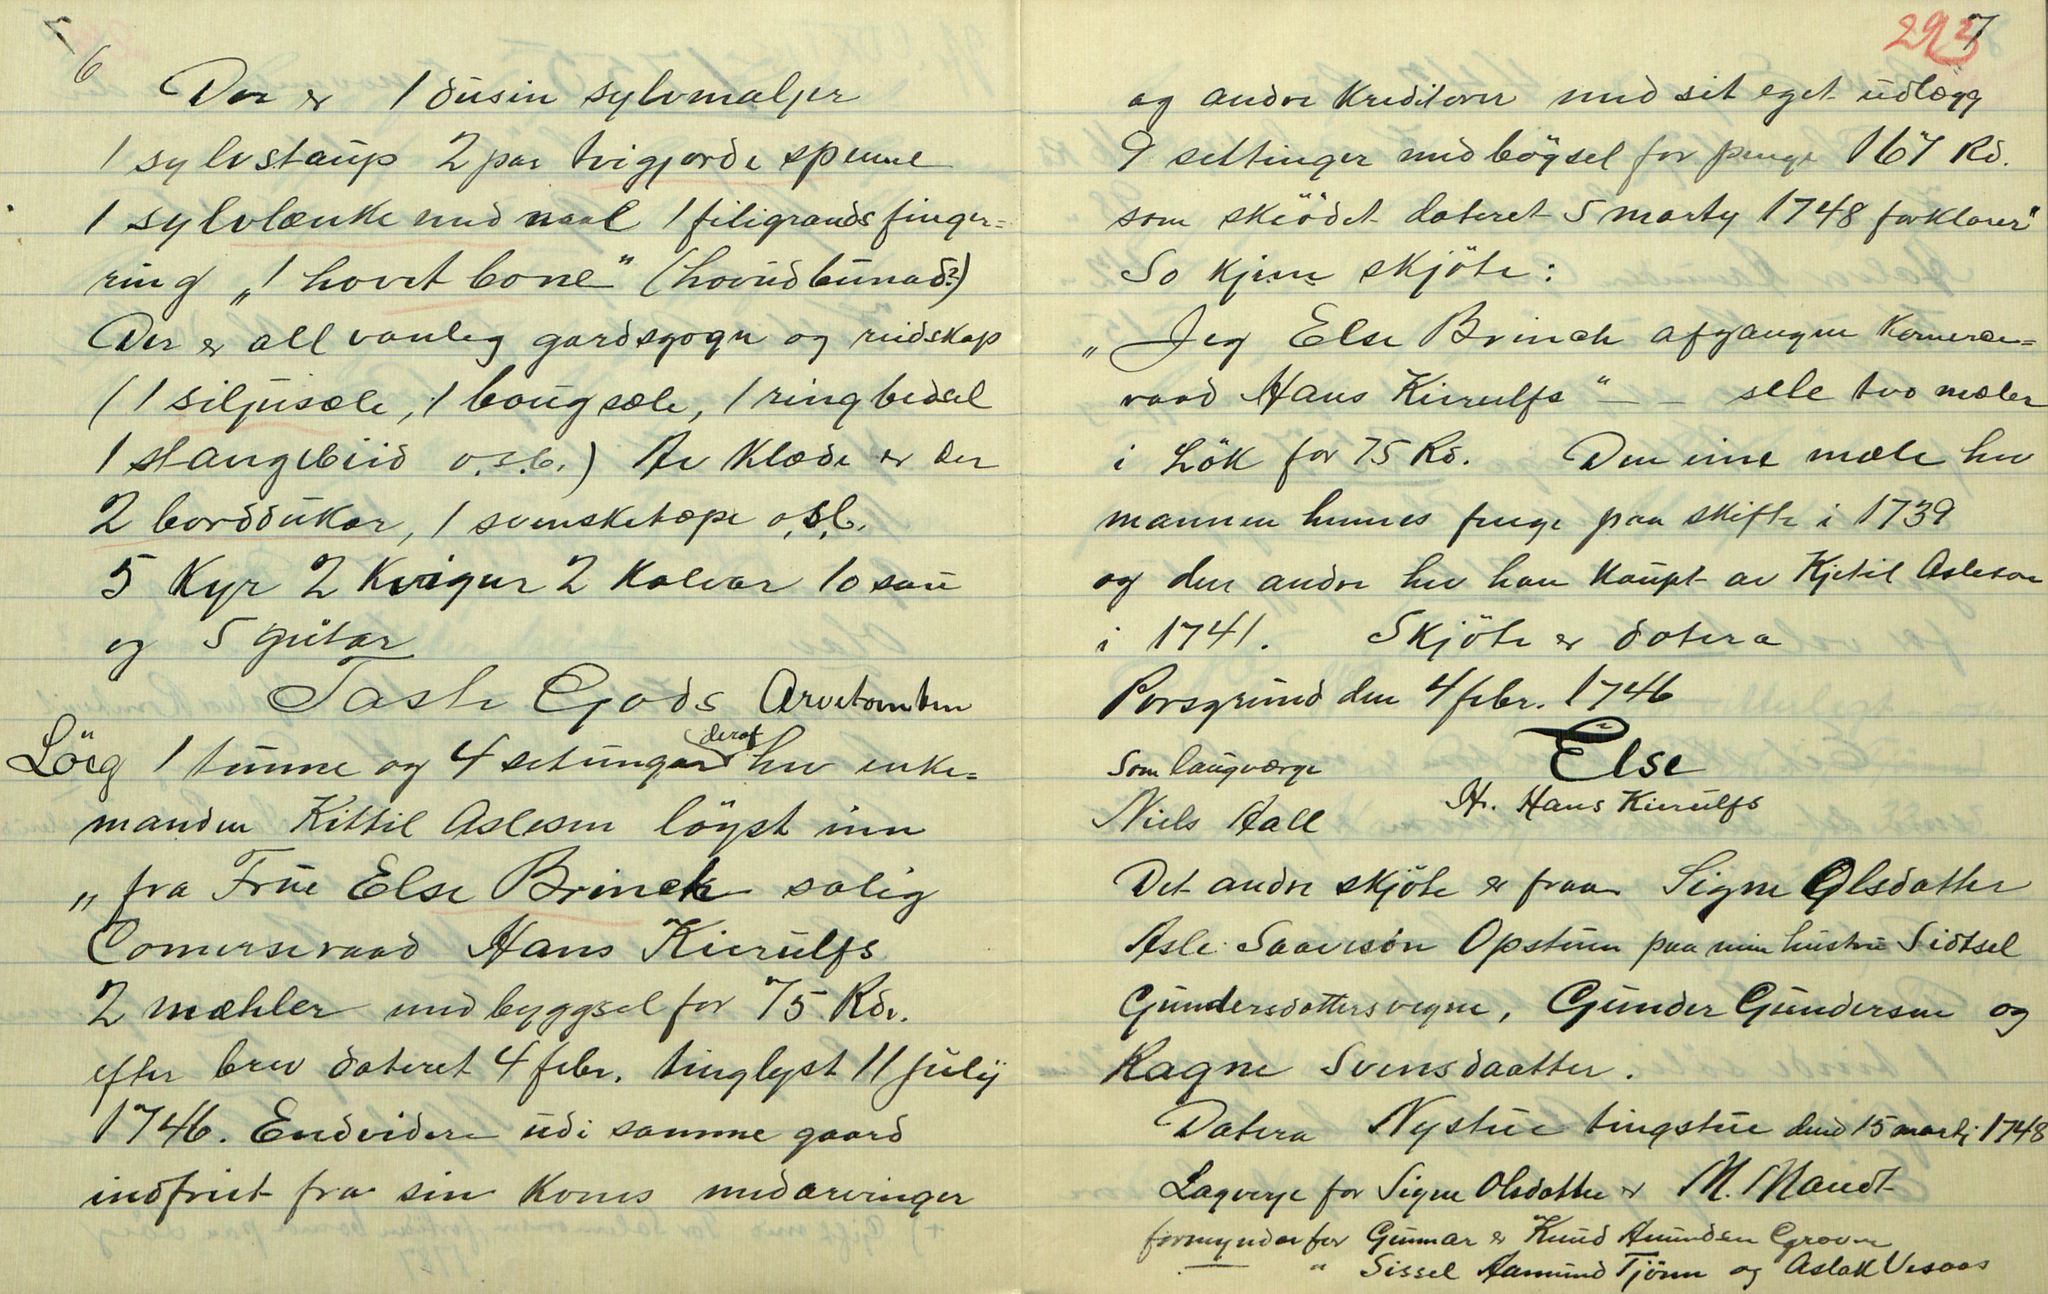 6
Der er 1 dusin sylvmaljer
1 sylvstaup 2 par tvigjorde spenne
1 sylvlænke med naal 1 filigrands finger=
ring „1 hovet bone" (hovudbunad?)
Der er all vanleg gardsgogn og reidskap
(1 siljusæle, 1 bougsæle, 1 ringbedsel
1 stangebiid o.s.b.) Av klæde er der
2 borddukar, 1 svensketæpe o.s.b.
5 kyr 2 kvigur 2 kalvar 10 sau
og 5 gutar
Jaste Gods Arvetomten
Löeg 1 tunne og 4 setungar deraf hev enke=
manden Kittil Aslesen löyst inn
„fra Frue Else Brinck salig
Comerseraad Hans Kierulfs
2 mæhler med byggsel for 75 Rd.
efter brev dateret 4 febr. tinglyst 11 julij
1746. Endvidere udi samme gaard
indfriet fra sin kones medarvinger
293
7
og andre kreditorer med sit eget udlægg
9 settinger med bögsel for penge 167 Rd.
som skiödet dateret 5 marty 1748 forklarer"
So kjem skjöte:
„Jeg Else Brinck afgangne Komerse=
raad Hans Kierulfs" – – sele tvo mæler
i Lök for 75 Rd. Den eine mæle hev
mannen hennes fenge paa skifte i 1739
og den andre hev han kaupt av Kjetil Asleson
i 1741. Skjöte er datera
Porsgrund den 4 febr. 1746
Som laugværge Else
Niels Aall H. Hans Kierulfs
Det andre skjöte er fraa Signe Olsdatter
Asle Saaverson Opstuen paa min hustru Sidtsel
Gundersdatters vegne, Gunder Gundersen og
Ragne Svensdaatter.
Datera Nystue tingstue dend 15 martj 1748
Lagverje for Signe Olsdatter er M. Mandt
formyndar for Gunnar er Knud Amundsen Groven
— " Sissel Aamund Tjönn og Aslak Vesaas